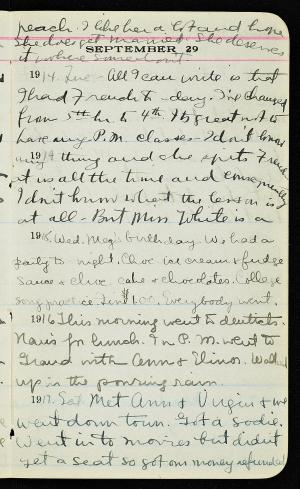 peach. I like her a lot and hope
She does get married. She deserves
it where
SEPTEMBER 29
1914. Tues. All I can write is that
I had French to-day. I've changed
from 5th hr. to 4th. It's great not to
have any P.M. classes. I don't know
any thing and she spits French
at us all the time and consequently
I don't know what the lesson is
at all. But Miss White is a
1915. Wed. Meg's birthday. We had a
party to-night. Choc. ice cream & fudge
sauce & choc. cake & chocolates. College
song practice Everybody went.
1916 This morning went to dentist's.
for lunch. In P.M. went to
Grand with Ann & Elinor. Walked
up in the pouring rain.
1917. Sat. Met Ann & Virgin & we
went down town. Got a sodie.
Went in to movies but didn't
get a seat so got our money refunded